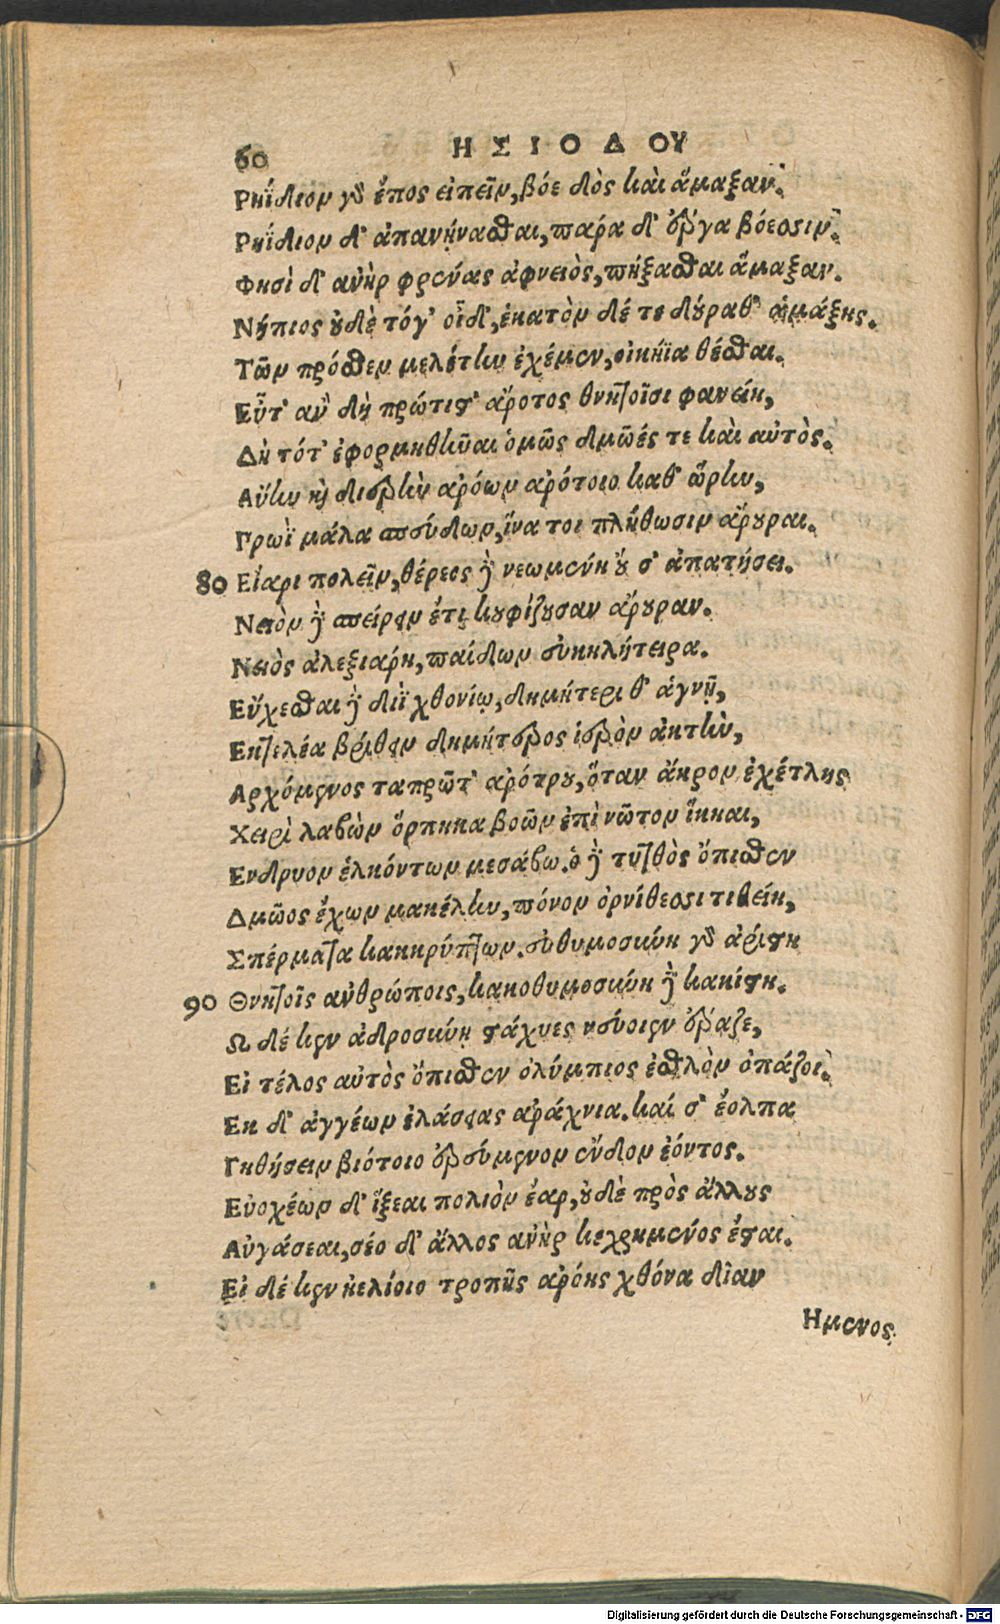 60 ΗΣΙΟΔΟΥ
Ρηΐδιον γὰρ ἔπος εἰπεῖν, βόε δὸς καὶ ἅμαξαν.
Ρηΐδιον δ' ἀπανήνασθαι, πάρα δ' ἔργα βόεσσιν.
Φησὶ δ' ἀνὴρ φρένας ἀφνειὸς, πήξασθαι ἅμαξαν.
Νήπιος οὐδὲ τόγ' οἶδ', ἑκατὸν δέ τε δούραθ' ἁμάξης.
Τῶν πρόσθεν μελέτην ἐχέμεν, οἰκήϊα θέσθαι.
Εὖτ' ἂν δὴ πρώτιστ' ἄροτος θνητοῖσι φανείη,
Δὴ τότ' ἐφορμηθῆναι ὁμῶς δμῶές τε καὶ αὐτὸς.
Αὔην καὶ διερὴν ἀρόων ἀρότοιο καθ' ὥρην,
Πρωῒ μάλα σπεύδων, ἵνα τοι πλήθωσιν ἄρουραι.
80 Εἴαρι πολεῖν, θέρεος δὲ νεωμένη οὔ σ' ἀπατήσει.
Νειὸν δὲ σπείρειν ἔτι κουφίζουσαν ἄρουραν.
Νειὸς ἀλεξιάρη, παίδων εὐκηλήτειρα.
Εὔχεσθαι δὲ Διῒ χθονίῳ, δημήτερι θ' ἁγνῇ,
Εκτελέα βρίθειν δημήτερος ἱερὸν ἀκτὴν,
Αρχόμενος ταπρῶτ' ἀρότρου, ὅταν ἄκρον ἐχέτλης
Χειρὶ λαβὼν ὅρπηκα βοῶν ἐπὶ νῶτον ἵκηαι,
Ενδρυον ἑλκόντων μεσάβω. ὁ δὲ τυτθὸς ὄπισθεν
Δμῶος ἔχων μακέλην, πόνον ὀρνίθεσσι τιθείη,
Σπέρματα κακκρύπτων. εὐθυμοσύνη γὰρ ἀρίστη
90 Θνητοῖς ἀνθρώποις, κακοθυμοσύνη δὲ κακίστη.
Ω δέ κεν ἁδροσύνη στάχυες νεύοιεν ἔραζε,
Εἰ τέλος αὐτὸς ὄπισθεν ὀλύμπιος ἐσθλὸν ὀπάζοι.
Εκ δ' ἀγγέων ἐλάσειας ἀράχνια. καί σ' ἔολπα
Γηθήσειν βιότοιο ἐρεύμενον ἔνδον ἐόντος.
Εὐοχέων δ' ἵξεαι πολιὸν ἔαρ, οὐδὲ πρὸς ἄλλους
Αὐγάσεαι, σέο δ' ἄλλος ἀνὴρ κεχρημένος ἔσται.
Εἰ δέ κεν ἠελίοιο τροπῆς ἀρόῃς χθόνα δῖαν
Ημενος
Digitalisierung gefördert durch die Deutsche Forschungsgemeinschaft - DFG